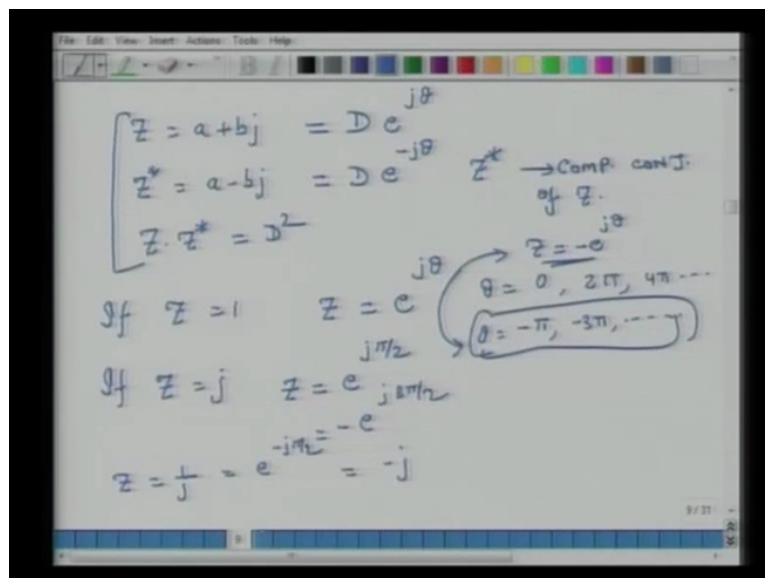 File Edit View Insert Actions Tools Help
Z = a + bj = D e^{jθ}
Z* = a - bj = D e^{-jθ} Z* → Comp. conj. of Z.
Z. Z* = D^2
Z = -e^{jθ}
If Z = 1 Z = e^{jθ}
θ = 0, 2π, 4π ....
θ = -π, -3π, ......
If Z = j Z = e^{jπ/2}
= - e^{j3π/2}
Z = 1/j = e^{-jπ/2} = -j
9 / 31
9